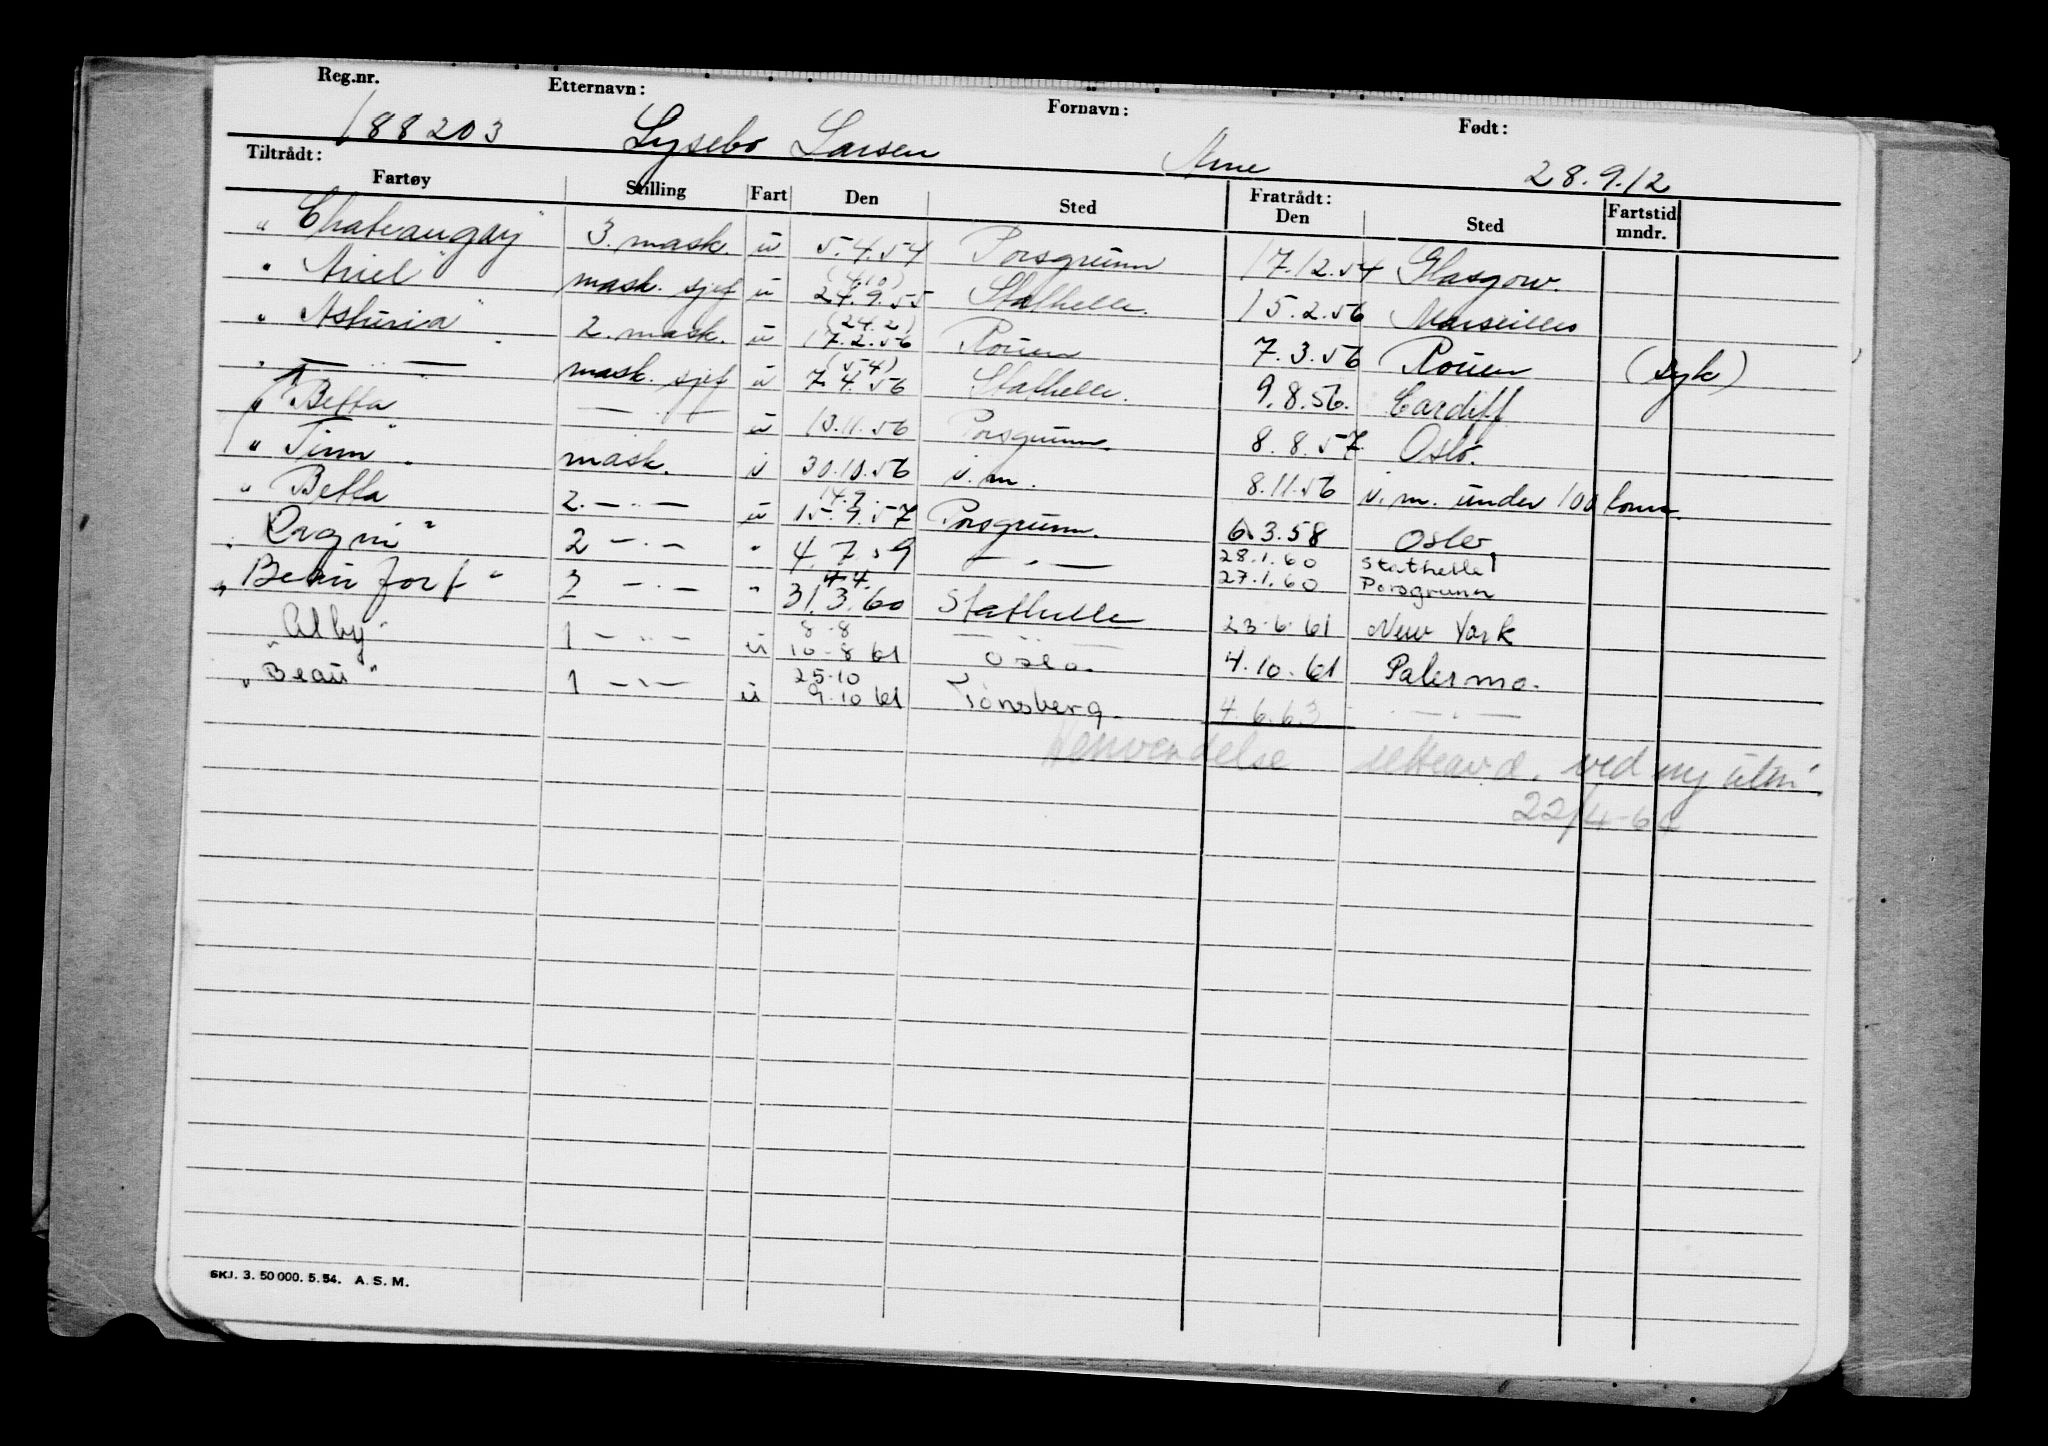 Reg.nr. Etternavn: Fornavn: Født:
188203 Lysebo Larsen Arne 28.9.12
Tiltrådt: Fratrådt:
Fartøy Stilling Fart Den Sted Den Sted Fartstid mndr.
"Chateaugay" 3. mask. u 5.4.54 Porsgrunn 17.12.54 Glasgow.
(4.10)
"Ariel" mask. sjef u 24.9.55 Stathelle. 15.2.56 Marseilles
(24.2)
"Asturia" 2. mask. u 17.2.56 Rouen 7.3.56 Rouen (syk)
(5.4)
" — . — mask. sjef u 7.4.56 Stathelle. 9.8.56. Cardiff
" Betta — . — u 13.11.56 Porsgrunn. 8.8.57. Oslo.
" Tinn". mask. u 30.10.56 i.m. 8.11.56 i.m. under 100 tonn.
" Betta 2. — . — u 15.9.57 Porsgrunn. 6.3.58 Oslo
"Ragni" 2 — . — " 4.7.59 — . — 28.1.60 Stathelle
27.1.60 Porsgrunn
4.4.
"Beaufort" 2 — . — " 31.3.60 Stathelle 23.6.61 New York
8-8
"Alby" 1 — . — u 10-8 61 Oslo. 4.10.61 Palermo.
25-10
"Beau" 1 — . — u 9.10 61 Tønsberg. 4.6.63 — . —
Henvendelse ved ny
22/4-6
SKJ. 3. 50 000. 5. 54. A. S. M.